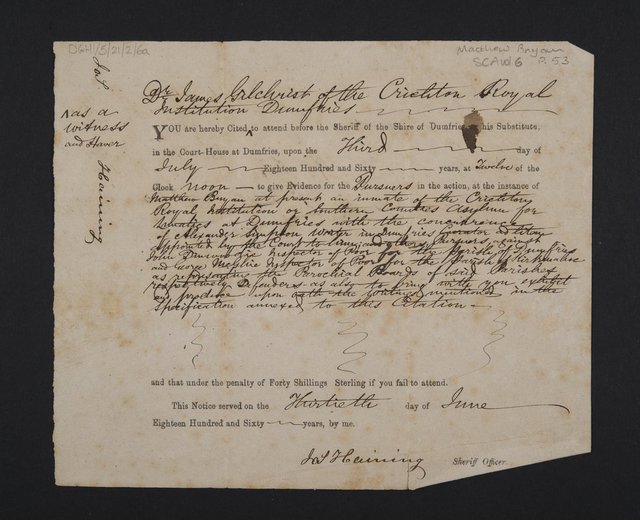 DGH1/5/21/2/6a
Matthew Bryan
SCAW6 P.53
Jas
Haining
as a
witness
and Haver
Dr. James Gilchrist of the Crichton Royal
Institution Dumfries
YOU are hereby Cited to attend before the Sheriff of the Shire of Dumfries his Substitute,
in the Court-House at Dumfries, upon the Third day of
July Eighteen Hundred and Sixty years, at Twelve of the
Clock noon to give Evidence for the Pursuers in the action, at the instance of
Matthew Bryan at present an inmate of the Crichton
Royal Institution or Southern Counties Asylum for
Lunatics at Dumfries with the concurrence
of Alexander Simpson Writer in Dumfries Curator ad litem
appointed by the Court to him, and others Pursuers, against
John Inspector of Poor for the Parish of Dumfries
and George Inspector of Poor for the Parish of Kirkmahoe
as representing the Parochial Boards of said Parishes
respectively Defenders as also to bring with you exhibit
and produce upon oath the mentioned in the
Specification annexed to this Citation
and that under the penalty of Forty Shillings Sterling if you fail to attend.
This Notice served on the Thirtieth day of June
Eighteen Hundred and Sixty years, by me.
Jas Haining Sheriff Officer.